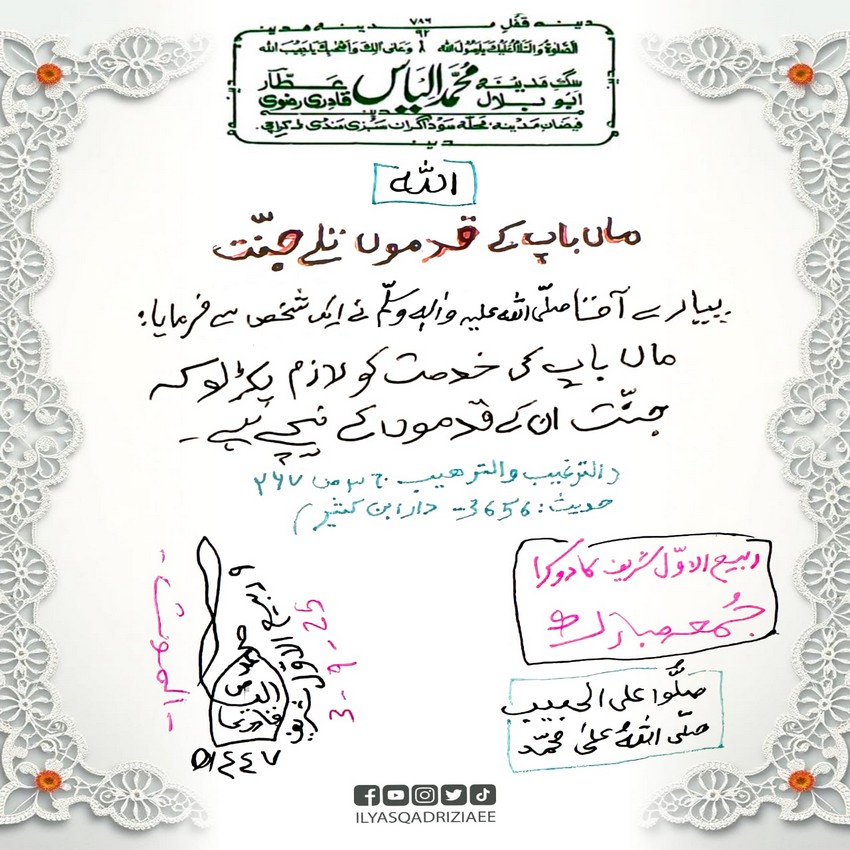 مدینہ قفلِ مدینہ مدینہ
۷۸۶
۹۲
الصّلوٰۃ والسّلام علیک یارسول اللہ وعلیٰ اٰلک واصحٰبک یاحبیب اللہ
سگِ مدینہ محمّد الیاس عطّار
ابو بلال قادری رضوی
فیضانِ مدینہ محلہ سوداگران سبزی منڈی کراچی
مدینہ
اللہ
ماں باپ کے قدموں تلے جنّت
پیارے آقا صلّی اللہ علیہ واٰلہٖ وسلّم نے ایک شخص سے فرمایا:
ماں باپ کی خدمت کو لازم پکڑلو کہ
جنّت ان کے قدموں کے نیچے ہے۔
(الترغیب والترھیب ج ۳ ص ۲۶۷
حدیث: 3656 - دار ابن کثیر)
ربیع الاوّل شریف کا دوسرا
جُمعہ مبارک
صلُّوا علی الحبیب
صلّی اللہُ علیٰ محمّد
-الموت-
محمد الیاس قادری
۹ ربیع الاوّل شریف
۱۴۴۷ھ
3-9-25
ILYASQADRIZIAEE